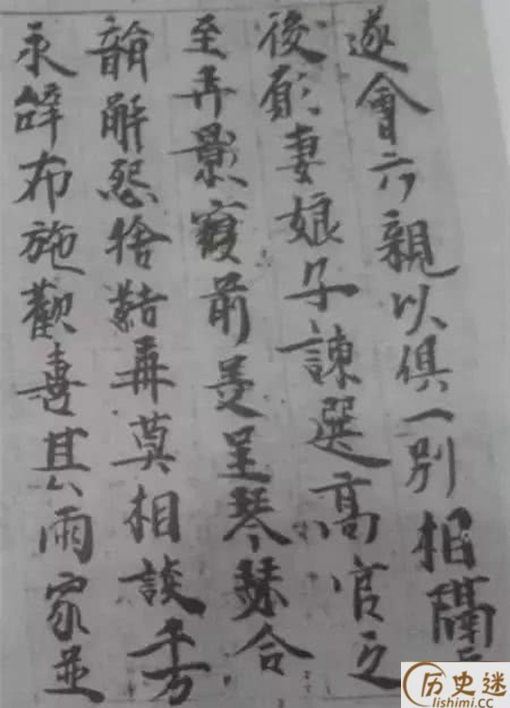 遂會六親以俱一別相隔
後願妻娘子諫選高官之
至弄影窈前美呈琴瑟合
韻解怨捨結再莫相談千万
永辝布施歡喜其兩家並
历史迷
lishimi.cc